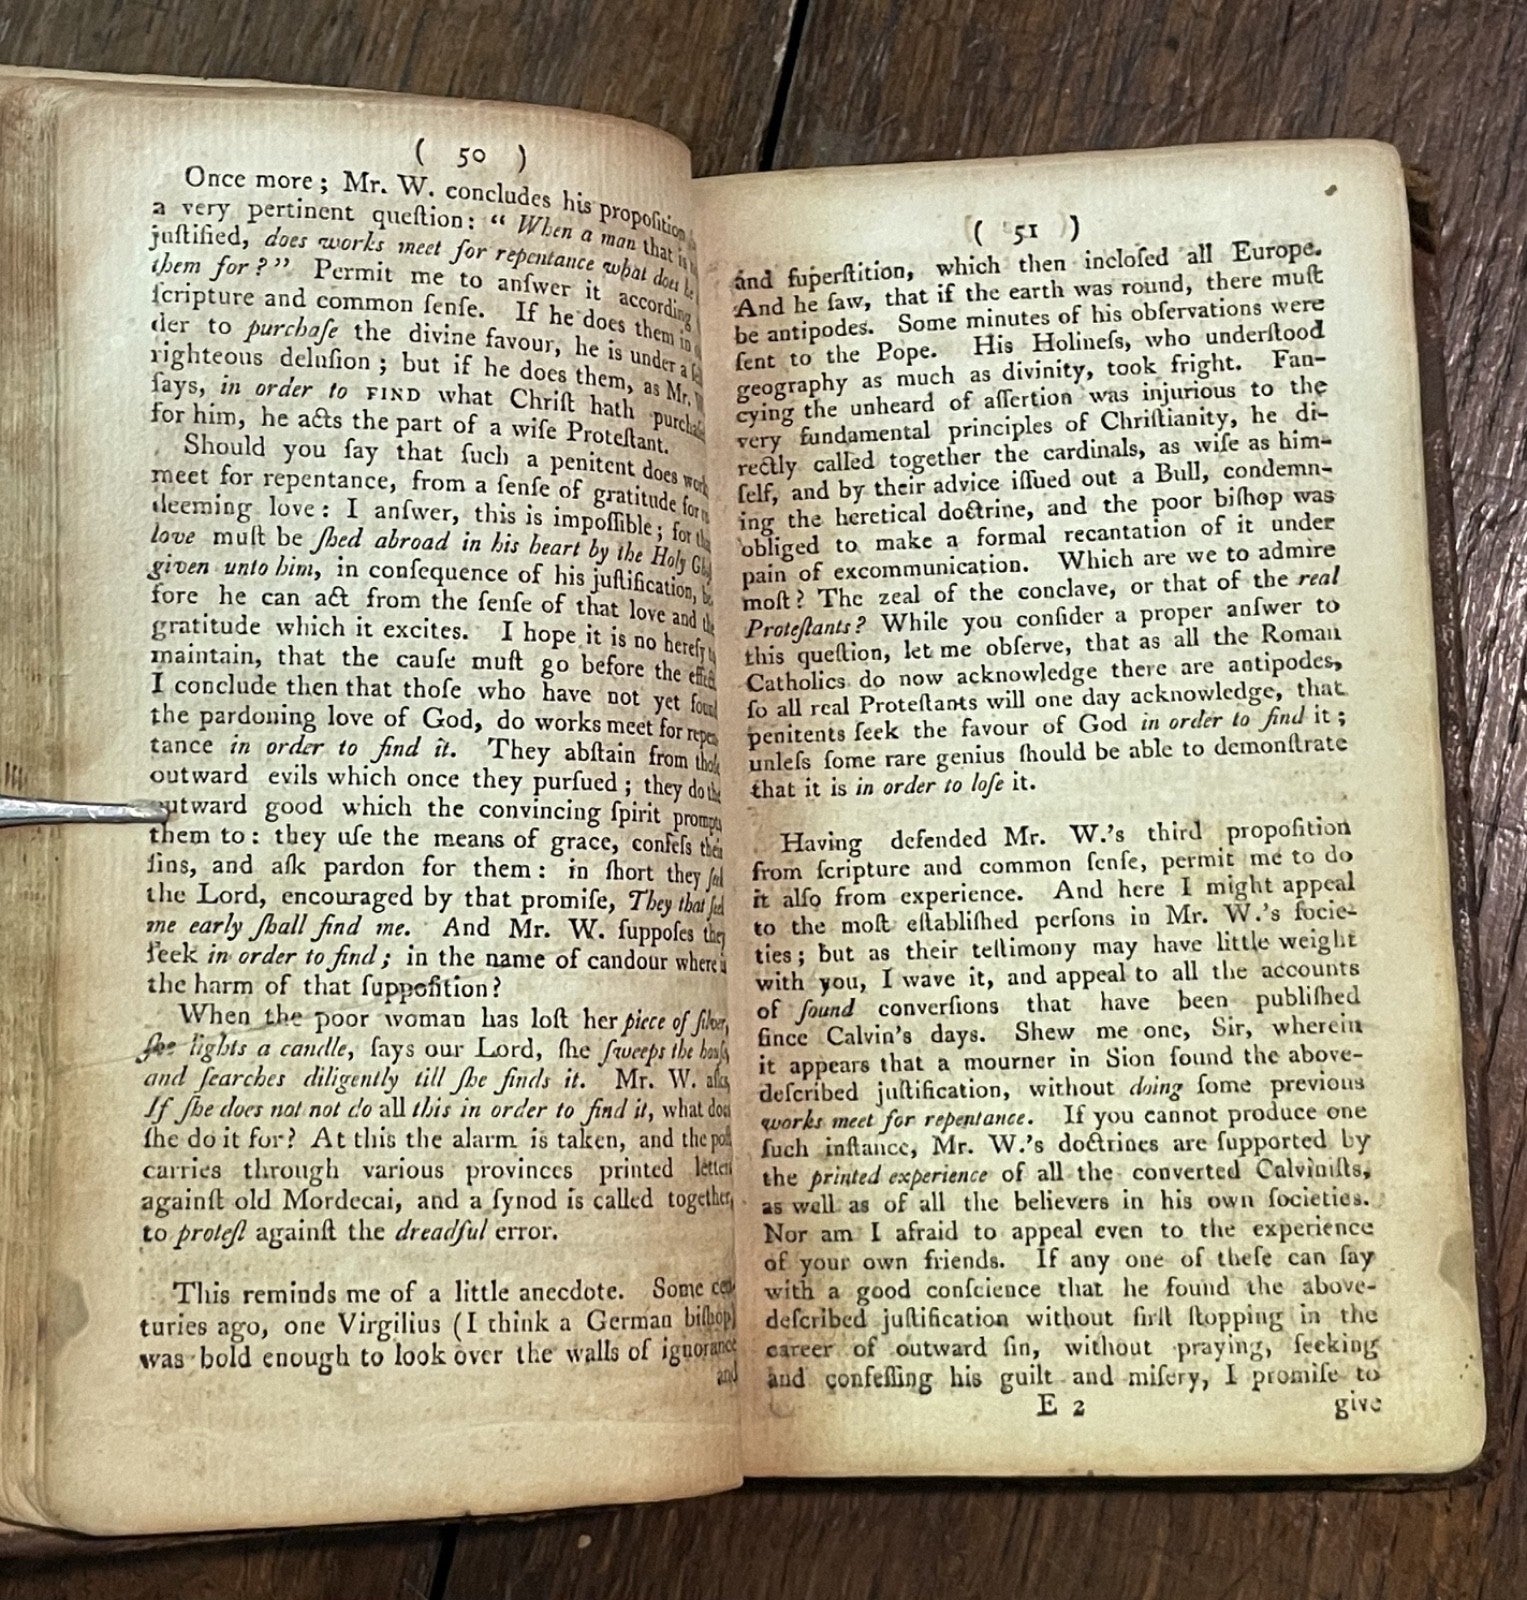 ( 50 )
Once more; Mr. W. concludes his proposition
a very pertinent queſtion: “ When a man that is
juſtified, does works meet for repentance what does he
them for?” Permit me to anſwer it according
ſcripture and common ſenſe. If he does them in
der to purchaſe the divine favour, he is under a
righteous deluſion; but if he does them, as Mr.
ſays, in order to FIND what Chriſt hath
for him, he acts the part of a wiſe Proteſtant.
Should you ſay that ſuch a penitent does work
meet for repentance, from a ſenſe of gratitude for
deeming love: I anſwer, this is impoſſible; for
love muſt be ſhed abroad in his heart by the Holy
given unto him, in conſequence of his juſtification,
fore he can act from the ſenſe of that love and
gratitude which it excites. I hope it is no hereſy
maintain, that the cauſe muſt go before the
I conclude then that thoſe who have not yet found
the pardoning love of God, do works meet for
tance in order to find it. They abſtain from
outward evils which once they purſued; they do the
outward good which the convincing ſpirit prompts
them to: they uſe the means of grace, confeſs their
ſins, and aſk pardon for them: in ſhort they
the Lord, encouraged by that promiſe, They that
me early ſhall find me. And Mr. W. ſuppoſes they
ſeek in order to find; in the name of candour where
the harm of that ſuppoſition?
When the poor woman has loſt her piece of ſilver,
ſhe lights a candle, ſays our Lord, ſhe ſweeps the houſe,
and ſearches diligently till ſhe finds it. Mr. W. aſks,
If ſhe does not not do all this in order to find it, what does
ſhe do it for? At this the alarm is taken, and the poſt
carries through various provinces printed letters
againſt old Mordecai, and a ſynod is called together,
to proteſt againſt the dreadful error.
This reminds me of a little anecdote. Some cen-
turies ago, one Virgilius (I think a German biſhop)
was bold enough to look over the walls of ignorance
and
( 51 )
and ſuperſtition, which then incloſed all Europe.
And he ſaw, that if the earth was round, there muſt
be antipodes. Some minutes of his obſervations were
ſent to the Pope. His Holineſs, who underſtood
geography as much as divinity, took fright. Fan-
cying the unheard of aſſertion was injurious to the
very fundamental principles of Chriſtianity, he di-
rectly called together the cardinals, as wiſe as him-
ſelf, and by their advice iſſued out a Bull, condemn-
ing the heretical doctrine, and the poor biſhop was
obliged to make a formal recantation of it under
pain of excommunication. Which are we to admire
moſt? The zeal of the conclave, or that of the real
Proteſtants? While you conſider a proper anſwer to
this queſtion, let me obſerve, that as all the Roman
Catholics do now acknowledge there are antipodes,
ſo all real Proteſtants will one day acknowledge, that
penitents ſeek the favour of God in order to find it;
unleſs ſome rare genius ſhould be able to demonſtrate
that it is in order to loſe it.
Having defended Mr. W.'s third propoſition
from ſcripture and common ſenſe, permit me to do
it alſo from experience. And here I might appeal
to the moſt eſtabliſhed perſons in Mr. W.'s ſocie-
ties; but as their teſtimony may have little weight
with you, I wave it, and appeal to all the accounts
of ſound converſions that have been publiſhed
ſince Calvin's days. Shew me one, Sir, wherein
it appears that a mourner in Sion found the above-
deſcribed juſtification, without doing ſome previous
works meet for repentance. If you cannot produce one
ſuch inſtance, Mr. W.'s doctrines are ſupported by
the printed experience of all the converted Calviniſts,
as well as of all the believers in his own ſocieties.
Nor am I afraid to appeal even to the experience
of your own friends. If any one of theſe can ſay
with a good conſcience that he found the above-
deſcribed juſtification without firſt ſtopping in the
career of outward ſin, without praying, ſeeking
and confeſſing his guilt and miſery, I promiſe to
E 2
give